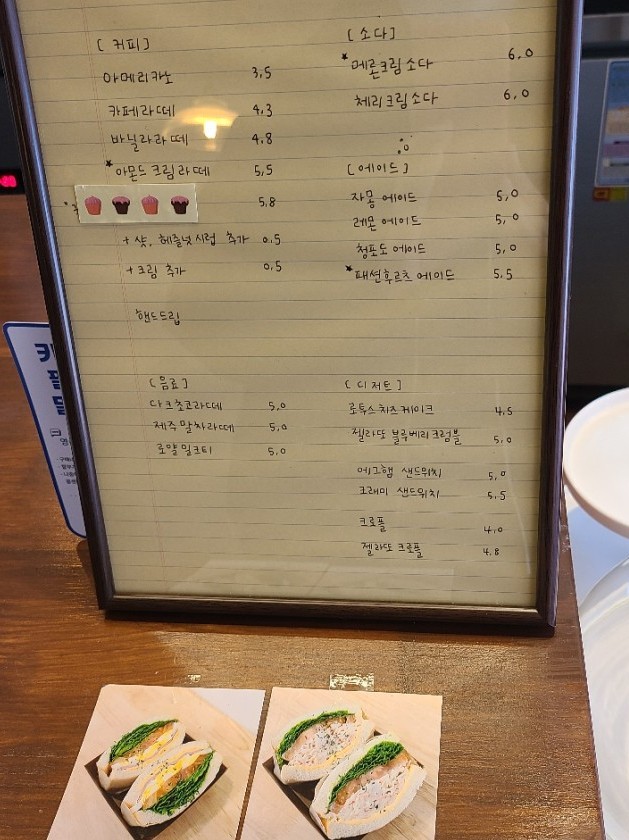 [커피]
아메리카노 3.5
카페라떼 4.3
바닐라라떼 4.8
*아몬드크림라떼 5.5
5.8
+샷, 헤즐넛시럽 추가 0.5
+크림 추가 0.5
핸드드립
[소다]
*메론크림소다 6.0
체리크림소다 6.0
[에이드]
자몽에이드 5.0
레몬에이드 5.0
청포도에이드 5.0
*패션후르츠에이드 5.5
[음료]
다크초코라떼 5.0
제주말차라떼 5.0
로얄밀크티 5.0
[디저트]
로투스치즈케이크 4.5
젤라또 블루베리크럼블 5.0
에그햄 샌드위치 5.0
크래미 샌드위치 5.5
크로플 4.0
젤라또 크로플 4.8